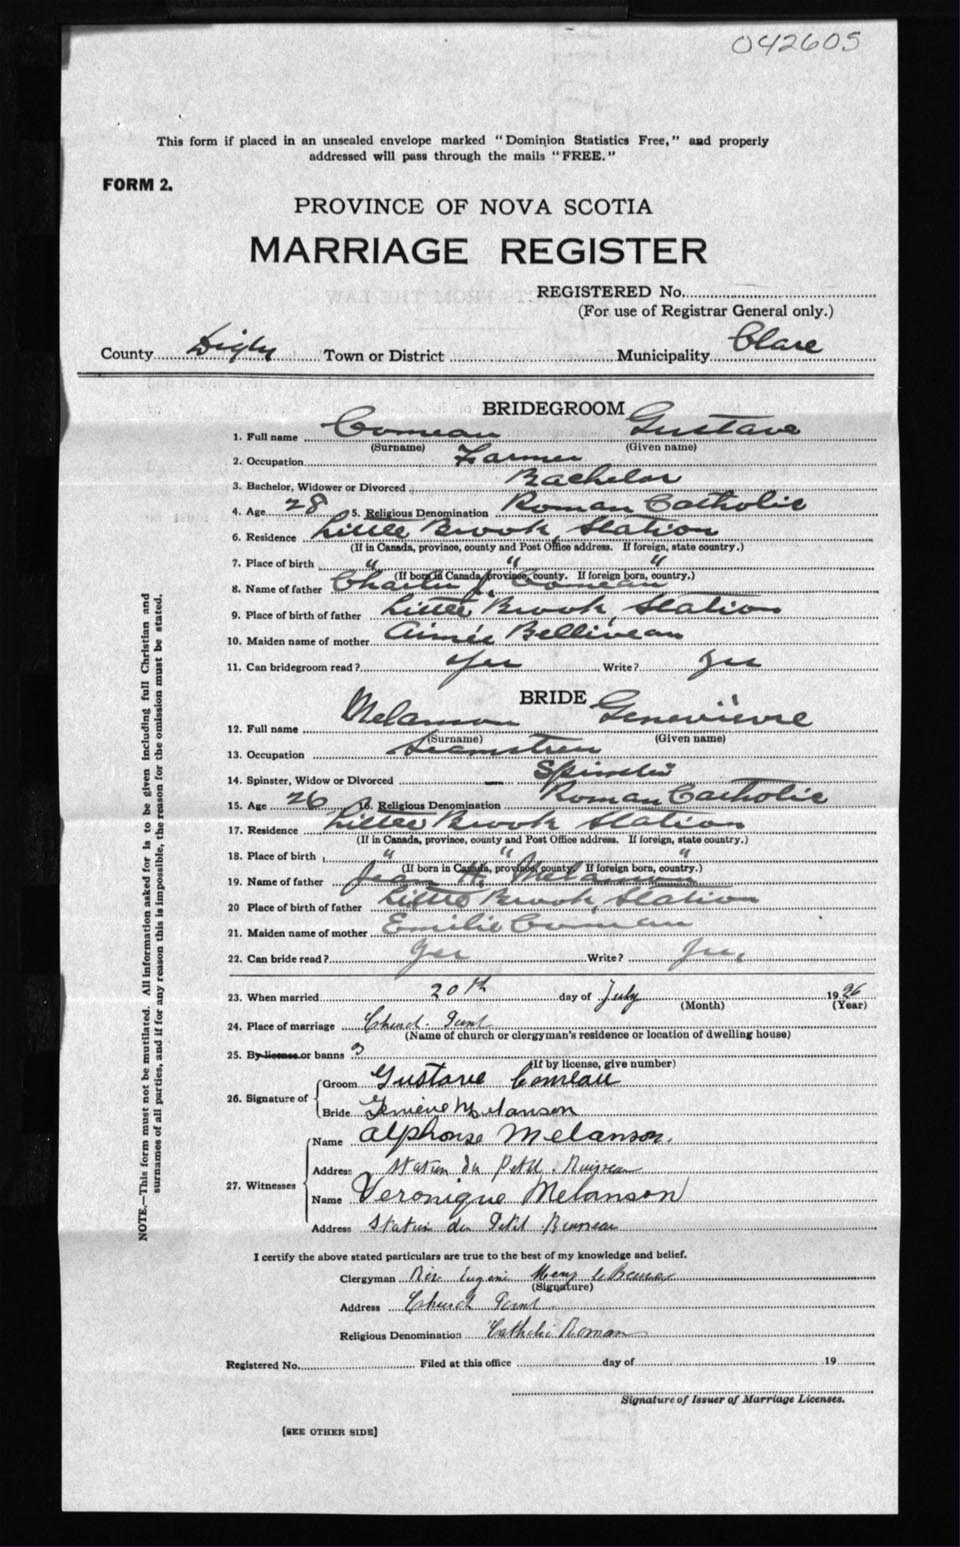 042605
This form if placed in an unsealed envelope marked "Dominion Statistics Free," and properly
addressed will pass through the mails "FREE."
FORM 2.
PROVINCE OF NOVA SCOTIA
MARRIAGE REGISTER
REGISTERED No.
(For use of Registrar General only.)
County Digby Town or District Municipality Clare
BRIDEGROOM
1. Full name Comeau Gustave
(Surname) (Given name)
2. Occupation Farmer
3. Bachelor, Widower or Divorced Bachelor
4. Age 28 5. Religious Denomination Roman Catholic
6. Residence Little Brook Station
(If in Canada, province, county and Post Office address. If foreign, state country.)
7. Place of birth " " "
(If born in Canada, province, county. If foreign born, country.)
8. Name of father Charles J. Comeau
9. Place of birth of father Little Brook Station
10. Maiden name of mother Aimée Belliveau
11. Can bridegroom read? Yes Write? Yes
BRIDE
12. Full name Melanson Geneviève
(Surname) (Given name)
13. Occupation Seamstress
14. Spinster, Widow or Divorced Spinster
15. Age 26 16. Religious Denomination Roman Catholic
17. Residence Little Brook Station
(If in Canada, province, county and Post Office address. If foreign, state country.)
18. Place of birth " " "
(If born in Canada, province, county. If foreign born, country.)
19. Name of father Jean H. Melanson
20 Place of birth of father Little Brook Station
21. Maiden name of mother Emilie Comeau
22. Can bride read? Yes Write? Yes
23. When married 20th day of July 1926
(Month) (Year)
24. Place of marriage Church Point
(Name of church or clergyman's residence or location of dwelling house)
25. By license or banns 3
(If by license, give number)
26. Signature of Groom Gustave Comeau
Bride Melanson
27. Witnesses Name Alphonse Melanson.
Address Station du Petit Ruisseau
Name Veronique Melanson
Address Station du Petit Ruisseau
I certify the above stated particulars are true to the best of my knowledge and belief.
Clergyman Rev Eugene
(Signature)
Address Church Point
Religious Denomination Catholic Roman
Registered No. Filed at this office day of 19
Signature of Issuer of Marriage Licenses.
[SEE OTHER SIDE]
NOTE.—This form must not be mutilated. All information asked for is to be given including full Christian and
surnames of all parties, and if for any reason this is impossible, the reason for the omission must be stated.